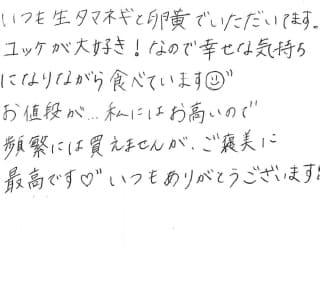 いつも生タマネギと卵黄でいただいてます。
ユッケが大好き!なので幸せな気持ち
になりながら食べています☺
お値段が…私にはお高いので
頻繁には買えませんが、ご褒美に
最高です♡いつもありがとうございます!